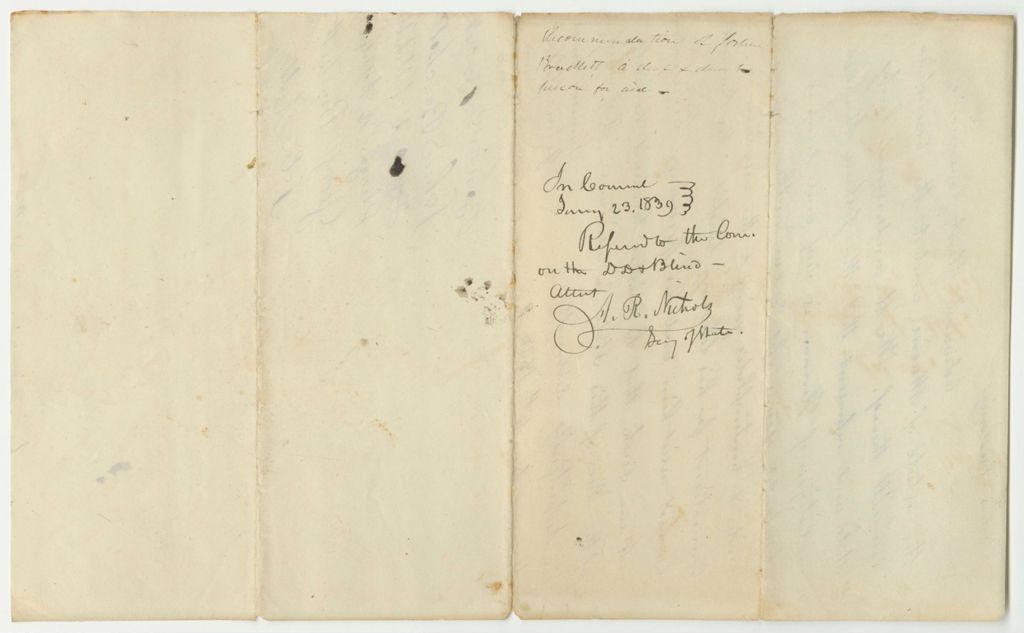 Recommendation of Joshua
Brackett a deaf & dumb
person for aid -
In Council
Jany 23. 1839
Referred to the Com.
on the D D & Blind -
Attest
A. R. Nichols
Secy of State.